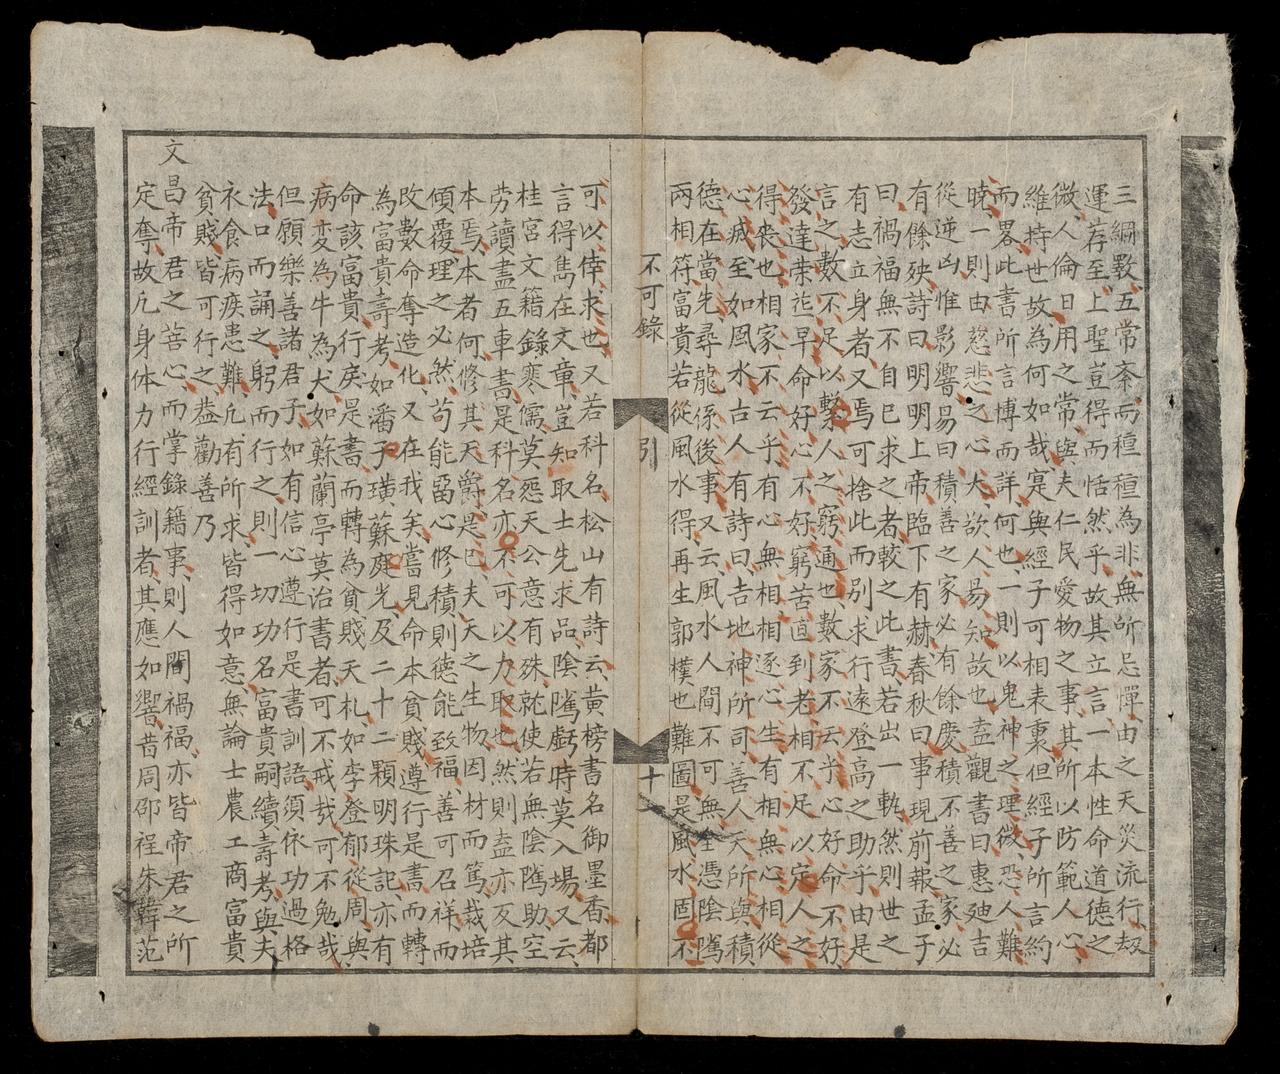 三綱斁五常紊而種種為非無所忌憚由之天災流行刼
運存至上聖豈得而恬然乎故其立言一本性命道德之
微人倫日用之常與夫仁民愛物之事其所以防範人心
維持世故為何如哉寔與經子可相表裏但經子所言約
而畧此書所言博而詳何也一則以鬼神之理微恐人難
曉一則由慈悲之心大欲人易知故也盍觀書曰惠廸吉
從逆凶惟影響易曰積善之家必有餘慶積不善之家必
有餘殃詩曰明明上帝臨下有赫春秋曰事現前報孟子
曰禍福無不自己求之者較之此書若出一軌然則世之
有志立身者又焉可捨此而別求行遠登高之助乎由是
言之數不足以繫人之窮通也數家不云乎心好命不好
發達荣華早命好心不好窮苦直到老相不足以定人之
得丧也相家不云乎有心無相相逐心生有相無心相從
心㓕至如風水古人有詩曰吉地神所司善人天所與積
德在當先尋龍係後事又云風水人間不可無全憑陰隲
兩相符富貴若從風水得再生郭樸也難圖是風水固不
不可錄
引
十
可以倖求也又若科名松山有詩云黄榜書名御墨香都
言得雋在文章豈知取士先求品陰隲虧時莫入場又云
桂宮文籍錄寒儒莫怨天公意有殊就使若無陰隲助空
劳讀盡五車書是科名亦不可以力取也然則盍亦反其
本焉本者何修其天爵是已夫天之生物因材而篤栽培
傾覆理之必然苟能畱心修積則德能致福善可召祥而
改數命奪造化又在我矣嘗見命本貧賤遵行是書而轉
為富貴壽考如潘子璜蘇庭光及二十二顆明珠記亦有
命該富貴行戾是書而轉為貧賤夭札如李登郁從周與
病变為牛為犬如蘇蘭亭莫治書者可不戒哉可不勉哉
但願樂善諸君子如有信心遵行是書訓語須依功過格
法口而誦之躬而行之則一切功名富貴嗣續壽考與夫
衣食病疾患難凢有所求皆得如意無論士農工商富貴
貧賤皆可行之葢勸善乃
文昌帝君之菩心而掌錄籍事則人間禍福亦皆帝君之所
定奪故凢身体力行經訓者其應如響昔周邵程朱韓范